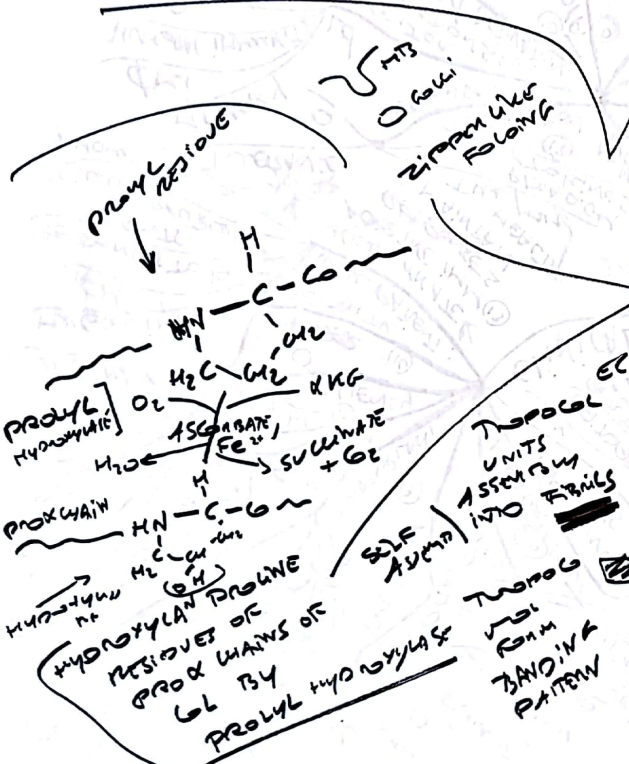 MTS
O GOLGI
ZIPPER LIKE
FOLDING
PROLYL
RESIDUE
H
C - Co
N
CH2
H2C CH2
PROLYL
HYDROXYLASE
O2
α KG
ASCORBATE
Fe2+,
H2O
SUCCINATE
+ CO2
H
PROα CHAIN
HN - C - Co
CH2
H2C CH
OH
HYDROXYLAN PROLINE
RESIDUES OF
PROα CHAINS OF
COL BY
PROLYL HYDROXYLASE
EC
TROPOCOL
UNITS
ASSEMBLY
INTO FIBRILS
SELF
ASSEMB
TROPOCO
MOL
FORM
BANDING
PATTERN